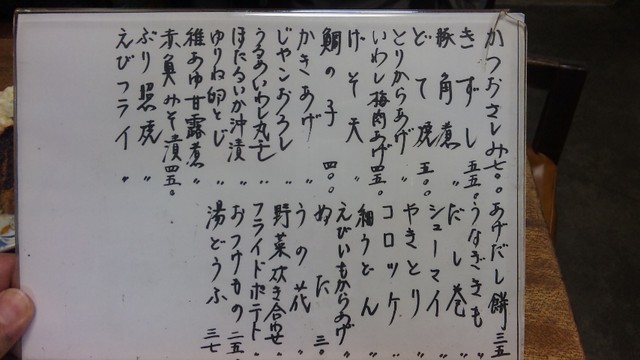 かつおさしみ 七〇〇
きずし 五五〇
豚角煮 〃
どて焼 五〇〇
とりからあげ 〃
いわし梅肉あげ 四五〇
げそ天 〃
鯛の子 四〇〇
かきあげ 〃
じゃこおろし 〃
うるめいわし丸干 〃
ほたるいか沖漬 〃
ゆりね卵とじ 〃
稚あゆ甘露煮 〃
赤魚みそ漬 四五〇
ぶり照焼 〃
えびフライ 〃
あげだし餅 三五
うなぎきも 〃
だし巻 〃
シューマイ 〃
やきとり 〃
コロッケ 〃
細うどん 〃
えびいもからあげ 〃
ぬた 三〇
うの花 〃
野菜炊き合わせ 〃
フライドポテト 〃
おつけもの 二五〇
湯どうふ 三七